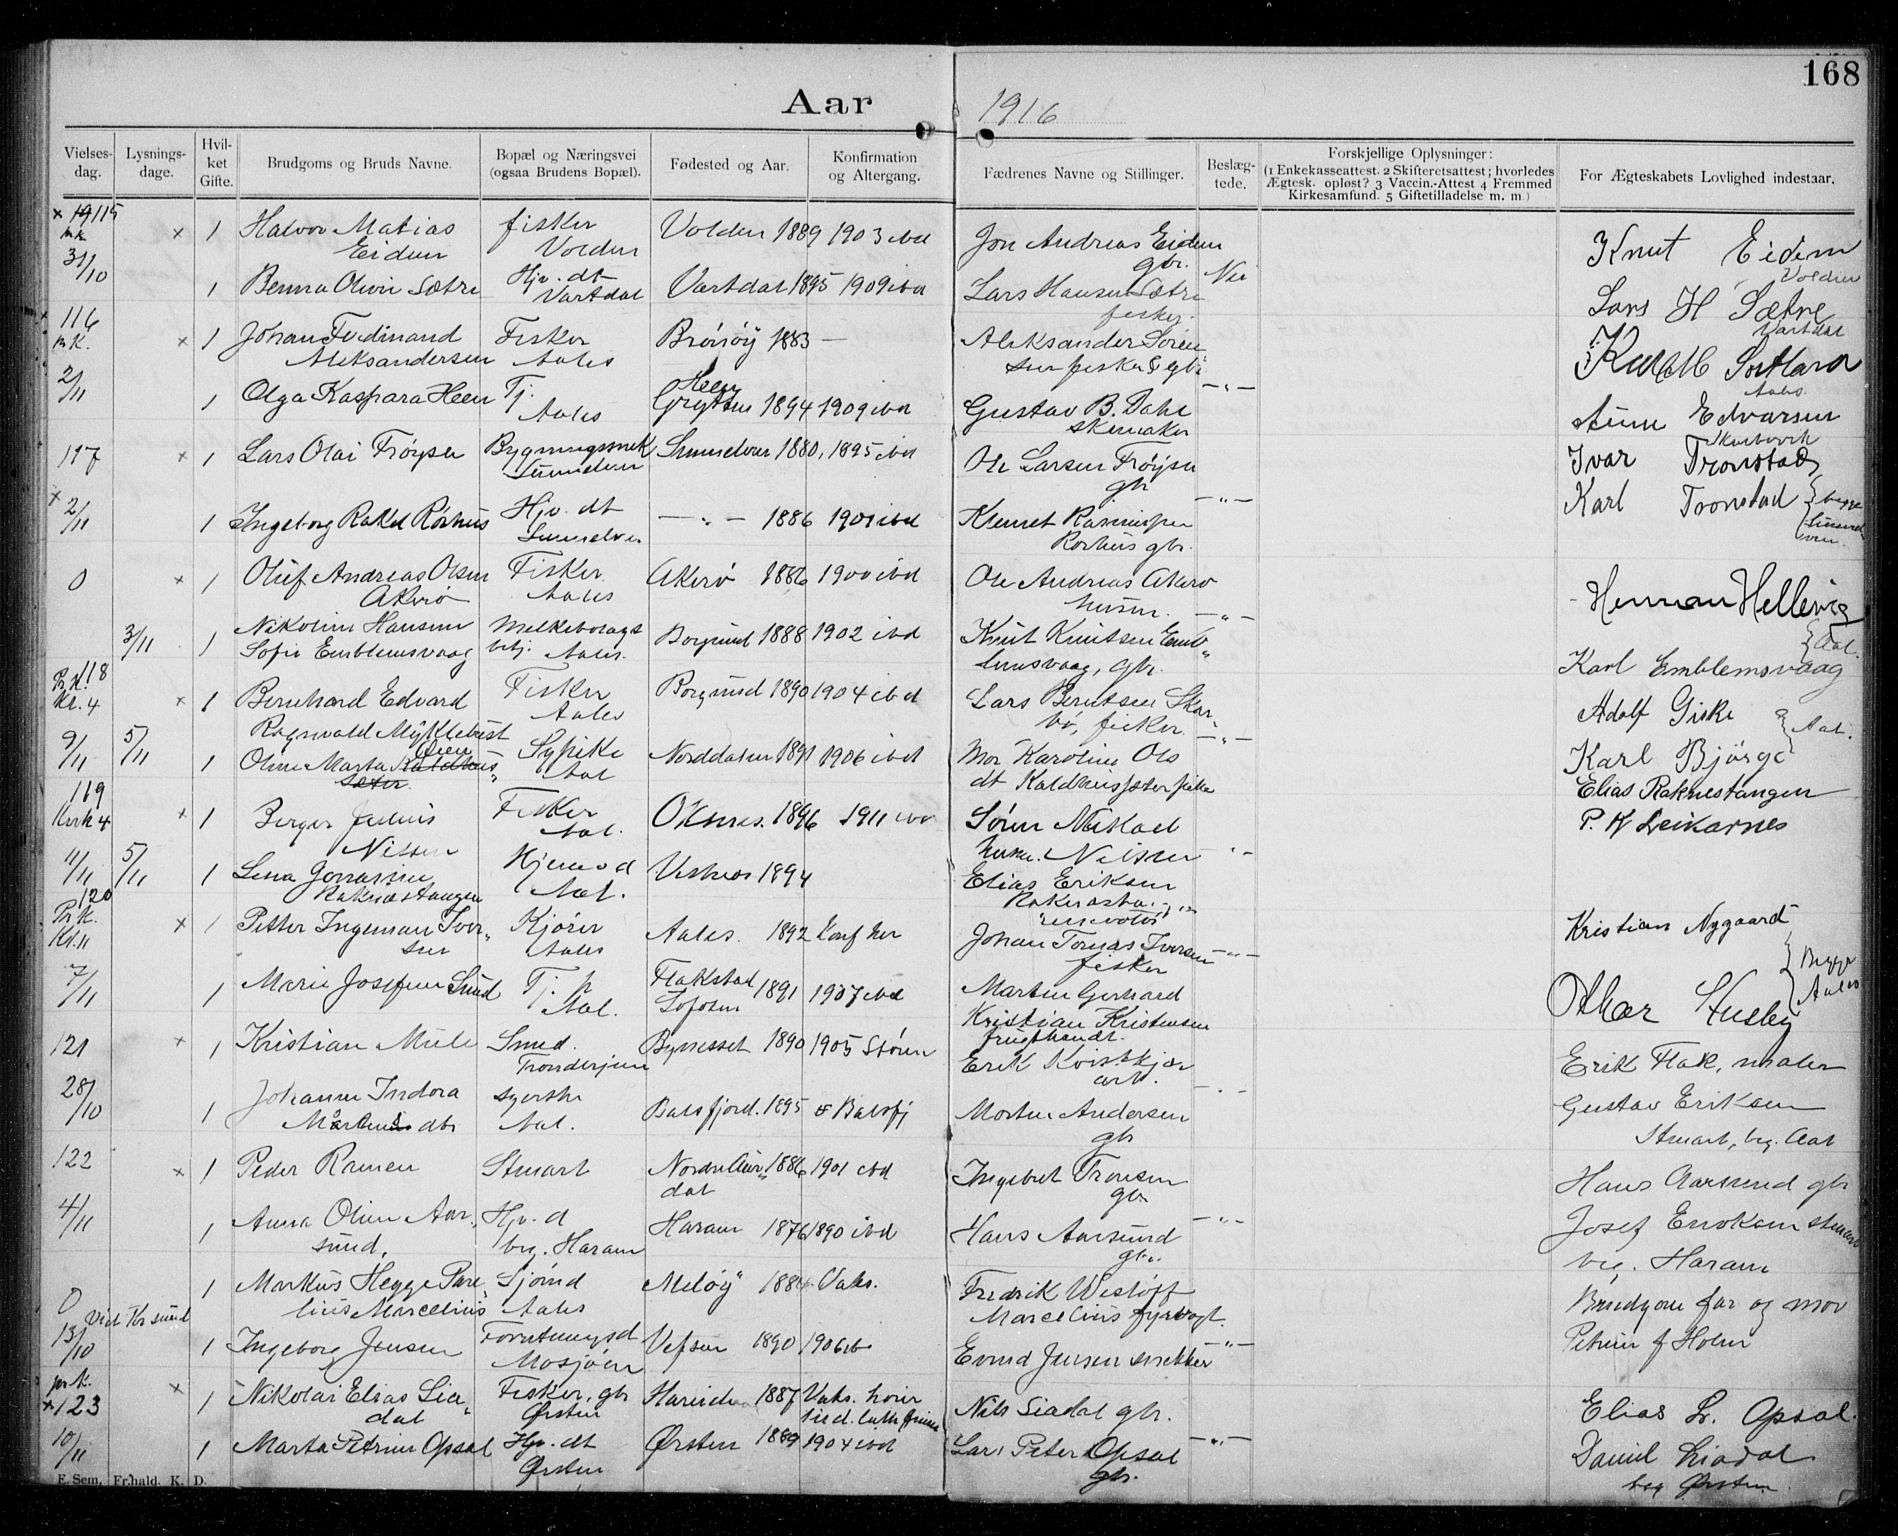 168
Aar 1916
Vielses-dag. Lysnings-dage. Hvil-ket Gifte. Brudgoms og Bruds Navne. Bopæl og Næringsvei (ogsaa Brudens Bopæl). Fødested og Aar. Konfirmation og Altergang. Fædrenes Navne og Stillinger. Beslæg-tede. Forskjellige Oplysninger: (1 Enkekasseattest. 2 Skifteretsattest; hvorledes Ægtesk. opløst? 3 Vaccin.-Attest 4 Fremmed Kirkesamfund. 5 Giftetilladelse m. m.) For Ægteskabets Lovlighed indestaar.
115 × 1 Halvor Matias fisker Volden 1889 1903 ibd Jon Andreas Eidem Knut Eidem
Eidem Volden gbr. Volden
31/10 1 Benna Olivie Sætre Hjv. dt Vartdal 1895 1909 ibd Lars Hansen Sætre Nei Lars H Sætre
Vartdal fisker. Vartdal
116 × 1 Johan Ferdinand Fisker Brønøy 1883 — Aleksander Søren
Aleksandersen Aales sen fisker & gbr
2/11 1 Olga Kaspara Heen Tj. Heen 1894 1909 ibd Gustav B. Dahl —"— Edvarsen
Aales Grytten skomaker
117 × 1 Lars Olai Frøysa Bygningssnek Sunnelven 1880, 1895 ibd Ole Larsen Frøysa Ivar Tronstad
Sunnelven gbr
× 2/11 1 Ingeborg Rakel Rørhus Hjv. dt —"— 1886 1901 ibd Klemet Rasmussen —"— Karl Tronstad begge
Sunnelven Rørhus gbr. Sunnelven
0 × 1 Oluf Andreas Olsen Fisker Akerø 1886 1900 ibd Ole Andreas Akerø Herman Hellevig
Akerø Aales husm. —"—
3/11 1 Nikoline Hansine Melkebolags Borgund 1888 1902 ibd Knut Knutsen Emb Aal.
Sofie Emblemsvaag Aales. lemsvaag, gbr. Karl Emblemsvaag
118
Kl. 4 × 1 Bernhard Edvard Fisker Borgund 1890 1904 ibd Lars Berntsen Skar Adolf Giske
Ragnvald Myklebust Aales bø, fisker —"— Aal.
9/11 5/11 1 Oline Marta Kaldhus Sypike Norddalen 1891 1906 ibd Mor Karoline Ols Karl Bjørge
Sæter Aal dt Kaldhussæter pike Elias Raknestangen
119 × 1 Berger Julius Fisker Øksnes. 1896 1911 ibd Søren Nikolai P. K Leikarnes
Nilsen Aal. husm. Nilsen —"—
4/11 5/11 1 Lena Jonasine Hjemv d 1894 Elias Eriksen
Raknestangen Aal.
120
Kl. 11 × 1 Petter Ingeman Iver Kjører Aales. 1892 Konf her Johan Tomas Iversen —"— Kristian Nygaard
sen Aales fisker Begge
7/11 1 Marie Josefine Sund Tj. p Flakstad 1891 1907 ibd Martin Gerhard Aales
Aal. Lofoten Kristian Kristensen Othar Husby
frugthandl.
121 × 1 Kristian Mule Smed. Bynesset 1890 1905 Støren Erik Kvistkjær Erik Flak, maler
Trondhjem arb. —"—
28/10 1 Johanne Indora syerske Balsfjord. 1895 Balsfj Morten Andersen Gustav Eriksen
dtr Aal. gbr Stuart, beg. Aal
122 × 1 Peder Stuart Nordre Aur 1886 1901 ibd Ingebret Tronsen Hans Aarsund gbr
dal gbr
4/11 1 Anna Oline Aar Hjv. d Haram 1876 1890 ibd Hans Aarsund —"— Josef
sund. beg. Haram gbr. beg. Haram
0 1 Markus Hegge Pare Sjømd Meløy 1886 Vaks. Fredrik Brudgom far og mor
lius Marcelius Aales Marcelius fyrvogt.
Viet Kr sund
13/10 1 Ingeborg Jensen Vefsen 1890 1906 ib Jensen snekker —"— Petrine Holm
Mosjøen
123 × 1 Nikolai Elias Lia Fisker, gbr Hareid 1887 Vaks. Nils Liadal gbr. Elias L. Opsal
dal Ørsten
10/11 1 Marta Petrine Opsal Hjv. dt Ørsten 1889 1904 ibd Lars Peter Opsal —"— Daniel Liadal
Ørsten gbr. beg Ørsten
E. Sem, Fr.hald. K. D.